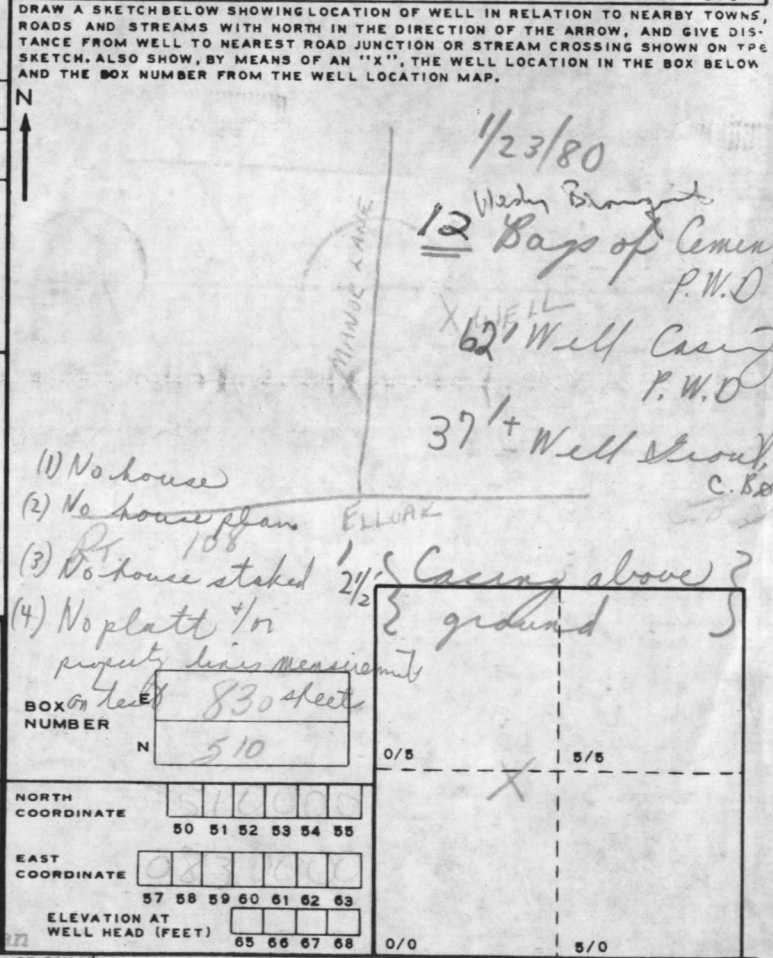 DRAW A SKETCH BELOW SHOWING LOCATION OF WELL IN RELATION TO NEARBY TOWNS,
ROADS AND STREAMS WITH NORTH IN THE DIRECTION OF THE ARROW, AND GIVE DIS-
TANCE FROM WELL TO NEAREST ROAD JUNCTION OR STREAM CROSSING SHOWN ON THE
SKETCH. ALSO SHOW, BY MEANS OF AN "X", THE WELL LOCATION IN THE BOX BELOW
AND THE BOX NUMBER FROM THE WELL LOCATION MAP.
N
1/23/80
12 Bags of Cemen
P.W.D
MANOR LANE
X WELL
62' Well Casing
P.W.D
37'+ Well Grout
C. Be
(1) No house
(2) No house plan
ELLOAK
RT 108
(3) No house staked
2 1/2' { Casing above }
{ ground }
(4) No platt +/or
property lines measurements
on test sheets
BOX NUMBER
E 830
N 510
0/5 5/5
X
NORTH COORDINATE
510000
50 51 52 53 54 55
EAST COORDINATE
0830000
57 58 59 60 61 62 63
ELEVATION AT WELL HEAD (FEET)
65 66 67 68
0/0 5/0